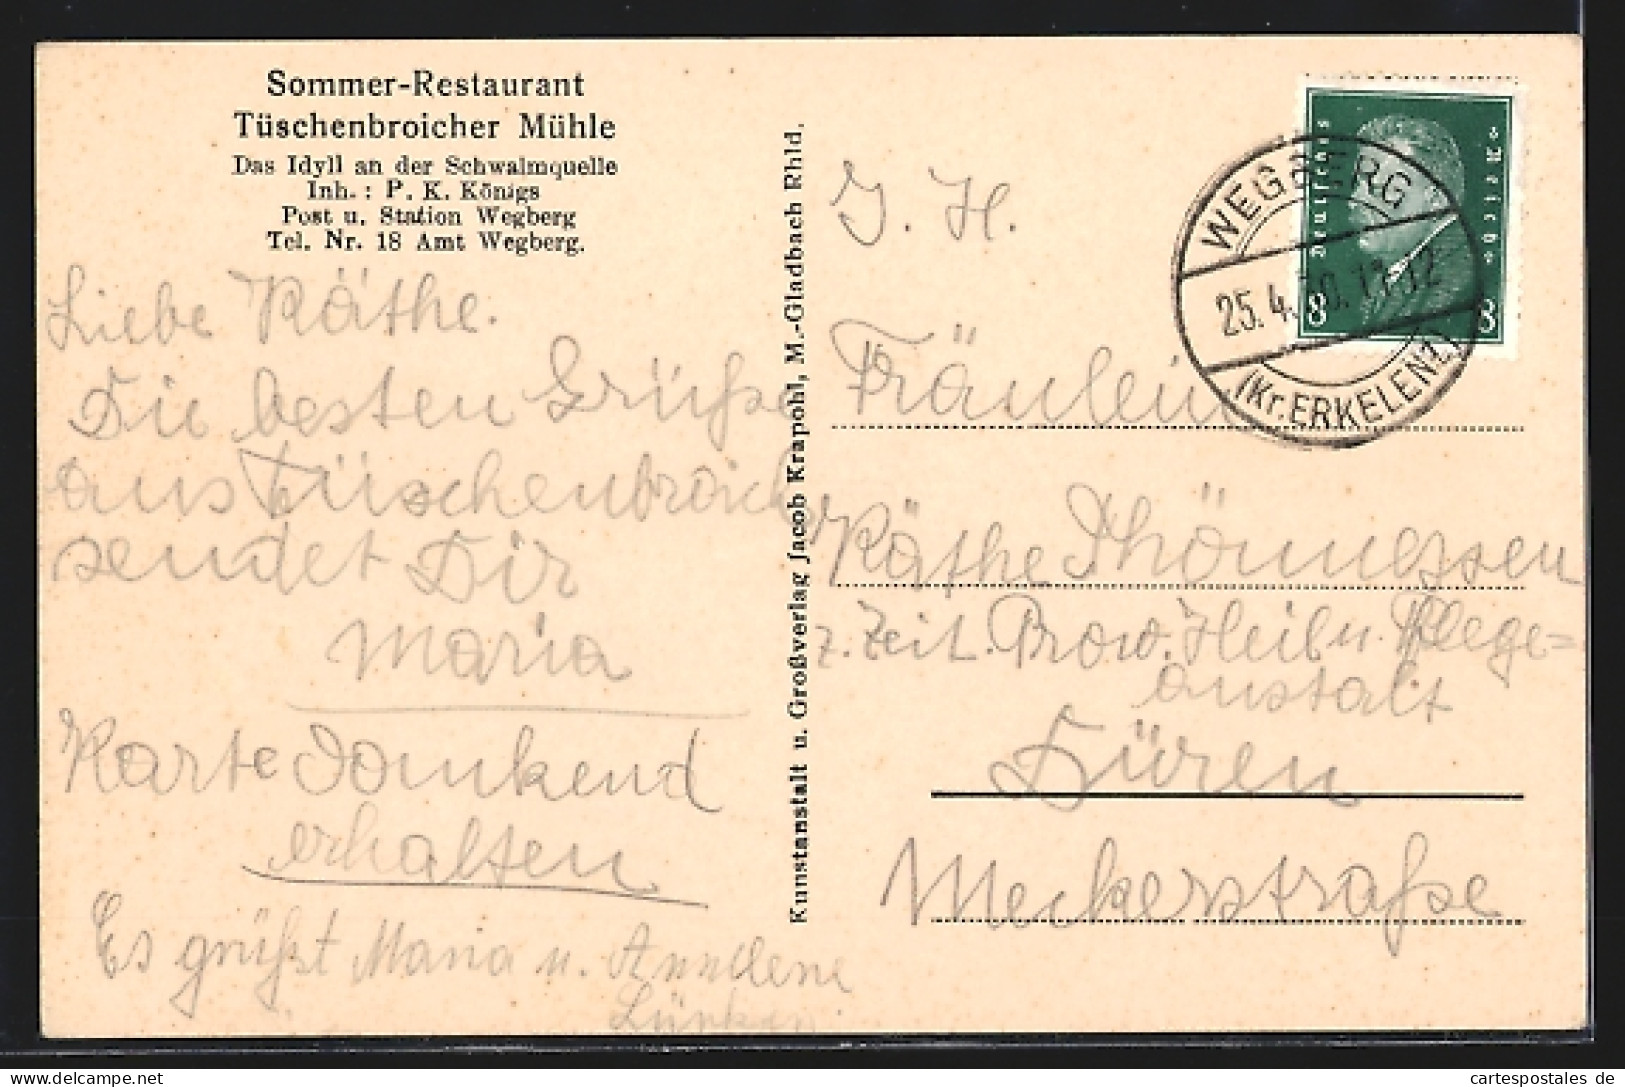 Sommer-Restaurant
Tüschenbroicher Mühle
Das Idyll an der Schwalmquelle
Inh.: P. K. Königs
Post u. Station Wegberg
Tel. Nr. 18 Amt Wegberg.
Liebe Käthe.
Die besten Grüße
aus Tüschenbroich
sendet Dir
Maria
Karte dankend
erhalten
Es grüßt Maria u.
Kunstanstalt u. Großverlag Jacob Krapohl, M.-Gladbach Rhld.
J. H.
Fräulein
Käthe Thönnessen
z. Zeit. Prov. Heil u. Pflege=
anstalt
Düren
Meckerstraße
Deutsches Reich
8 8
WEGBERG
25.4.30.11-12
(Kr. ERKELENZ)
cartespostales de